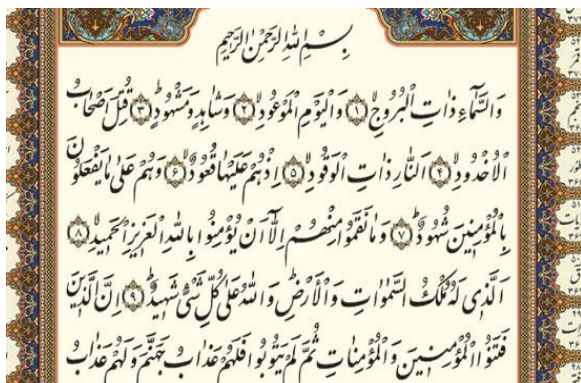 بِسْمِ اللّٰهِ الرَّحْمٰنِ الرَّحِيمِ
وَالسَّمَآءِ ذَاتِ الْبُرُوجِۙ ﴿۱﴾ وَالْيَوْمِ الْمَوْعُودِۙ ﴿۲﴾ وَشَاهِدٍ وَمَشْهُودٍؕ ﴿۳﴾ قُتِلَ اَصْحَابُ
الْاُخْدُودِۙ ﴿۴﴾ اَلنَّارِ ذَاتِ الْوَقُودِۙ ﴿۵﴾ اِذْ هُمْ عَلَيْهَا قُعُودٌۙ ﴿۶﴾ وَهُمْ عَلٰى مَا يَفْعَلُونَ
بِالْمُؤْمِنِينَ شُهُودٌؕ ﴿۷﴾ وَمَا نَقَمُوا مِنْهُمْ اِلَّآ اَنْ يُؤْمِنُوا بِاللّٰهِ الْعَزِيزِ الْحَمِيدِۙ ﴿۸﴾
اَلَّذِى لَهُ مُلْكُ السَّمٰوَاتِ وَالْاَرْضِؕ وَاللّٰهُ عَلٰى كُلِّ شَىْءٍ شَهِيدٌؕ ﴿۹﴾ اِنَّ الَّذِينَ
فَتَنُوا الْمُؤْمِنِينَ وَالْمُؤْمِنَاتِ ثُمَّ لَمْ يَتُوبُوا فَلَهُمْ عَذَابُ جَهَنَّمَ وَلَهُمْ عَذَابُ